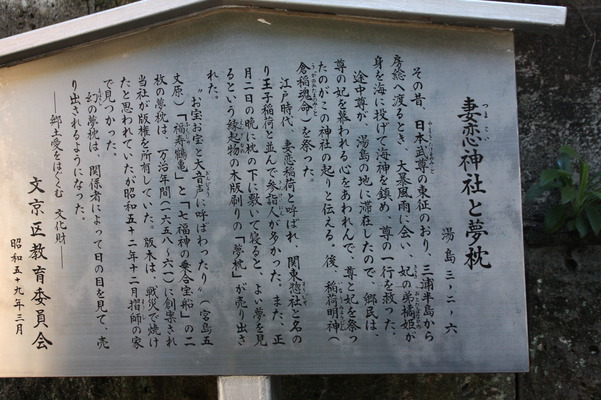 妻恋神社と夢枕
湯島三-二-六
その昔、日本武尊の東征のおり、三浦半島から
房総へ渡るとき、大暴風雨に会い、妃の弟橘姫が
身を海に投げて海神を鎮め、尊の一行を救った。
途中尊が、湯島の地に滞在したので、郷民は、
尊の妃を慕われる心をあわれんで、尊と妃を祭っ
たのがこの神社の起りと伝える。後、稲荷明神（
倉稲魂命）を祭った。
江戸時代、妻恋稲荷と呼ばれ、関東惣社と名の
り王子稲荷と並んで参詣人が多かった。また、正
月二日の晩に枕の下に敷いて寝ると、よい夢を見
るという縁起物の木版刷りの「夢枕」が売り出さ
れた。
“お宝お宝と大音声に呼ばわったり”（宮島五
丈原）「福寿鶴亀」と「七福神の乗合宝船」の二
枚の夢枕は、万治年間（一六五八～六一）に創案され
当社が版権を所有していた。版木は、戦災で焼け
たと思われていたが昭和五十二年十二月摺師の家
で見つかった。
幻の夢枕は、関係者によって日の目を見て、売
り出されるようになった。
―郷土愛をはぐくむ 文化財―
文京区教育委員会
昭和五十九年三月